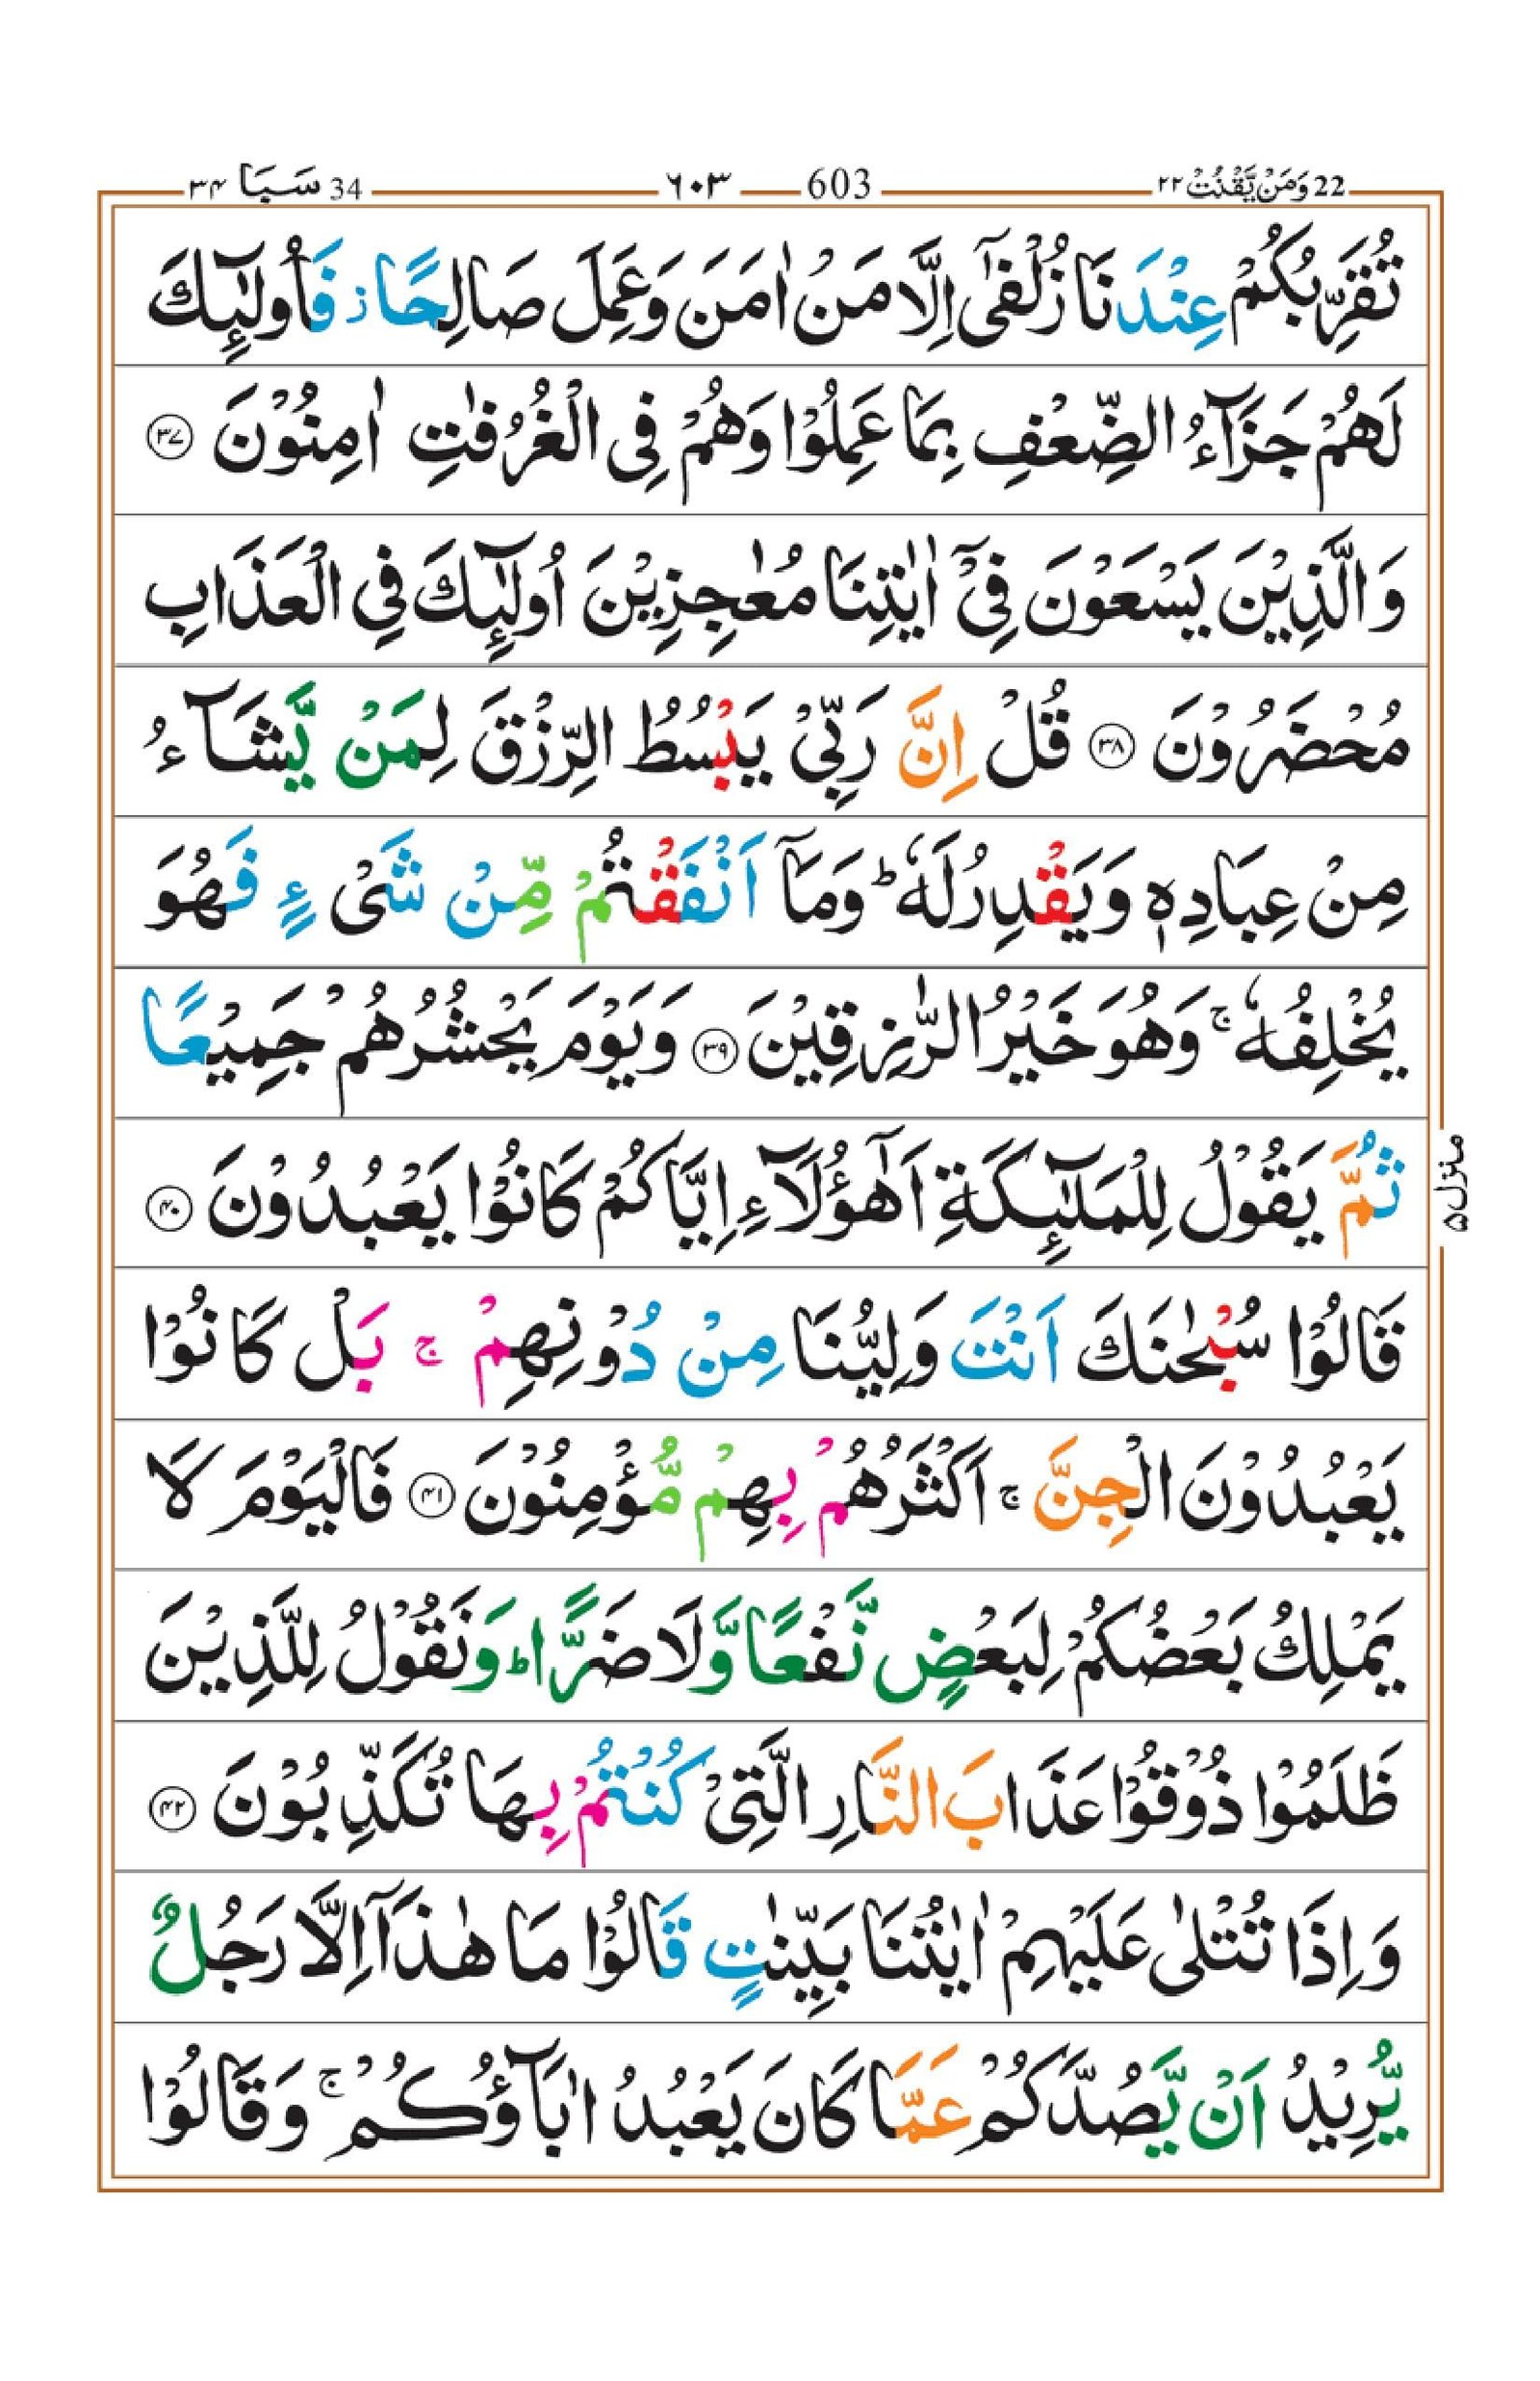 22 وَمَنْ يَّقْنُتْ ٢٢
603 ٦٠٣
34 سَبَا ٣٤
تُقَرِّبُكُمْ عِنْدَنَا زُلْفٰٓى اِلَّا مَنْ اٰمَنَ وَعَمِلَ صَالِحًا ز فَاُولٰٓئِكَ
لَهُمْ جَزَآءُ الضِّعْفِ بِمَا عَمِلُوْا وَهُمْ فِى الْغُرُفٰتِ اٰمِنُوْنَ ۝٣٧
وَالَّذِيْنَ يَسْعَوْنَ فِىْٓ اٰيٰتِنَا مُعٰجِزِيْنَ اُولٰٓئِكَ فِى الْعَذَابِ
مُحْضَرُوْنَ ۝٣٨ قُلْ اِنَّ رَبِّىْ يَبْسُطُ الرِّزْقَ لِمَنْ يَّشَآءُ
مِنْ عِبَادِهٖ وَيَقْدِرُ لَهٗ ؕ وَمَآ اَنْفَقْتُمْ مِّنْ شَىْءٍ فَهُوَ
يُخْلِفُهٗ ۚ وَهُوَ خَيْرُ الرّٰزِقِيْنَ ۝٣٩ وَيَوْمَ يَحْشُرُهُمْ جَمِيْعًا
ثُمَّ يَقُوْلُ لِلْمَلٰٓئِكَةِ اَهٰٓؤُلَآءِ اِيَّاكُمْ كَانُوْا يَعْبُدُوْنَ ۝٤٠
قَالُوْا سُبْحٰنَكَ اَنْتَ وَلِيُّنَا مِنْ دُوْنِهِمْ ۚ بَلْ كَانُوْا
يَعْبُدُوْنَ الْجِنَّ ۚ اَكْثَرُهُمْ بِهِمْ مُّؤْمِنُوْنَ ۝٤١ فَالْيَوْمَ لَا
يَمْلِكُ بَعْضُكُمْ لِبَعْضٍ نَّفْعًا وَّلَا ضَرًّا ؕ وَنَقُوْلُ لِلَّذِيْنَ
ظَلَمُوْا ذُوْقُوْا عَذَابَ النَّارِ الَّتِىْ كُنْتُمْ بِهَا تُكَذِّبُوْنَ ۝٤٢
وَاِذَا تُتْلٰى عَلَيْهِمْ اٰيٰتُنَا بَيِّنٰتٍ قَالُوْا مَا هٰذَآ اِلَّا رَجُلٌ
يُّرِيْدُ اَنْ يَّصُدَّكُمْ عَمَّا كَانَ يَعْبُدُ اٰبَآؤُكُمْ ۚ وَقَالُوْا
منزل ۵